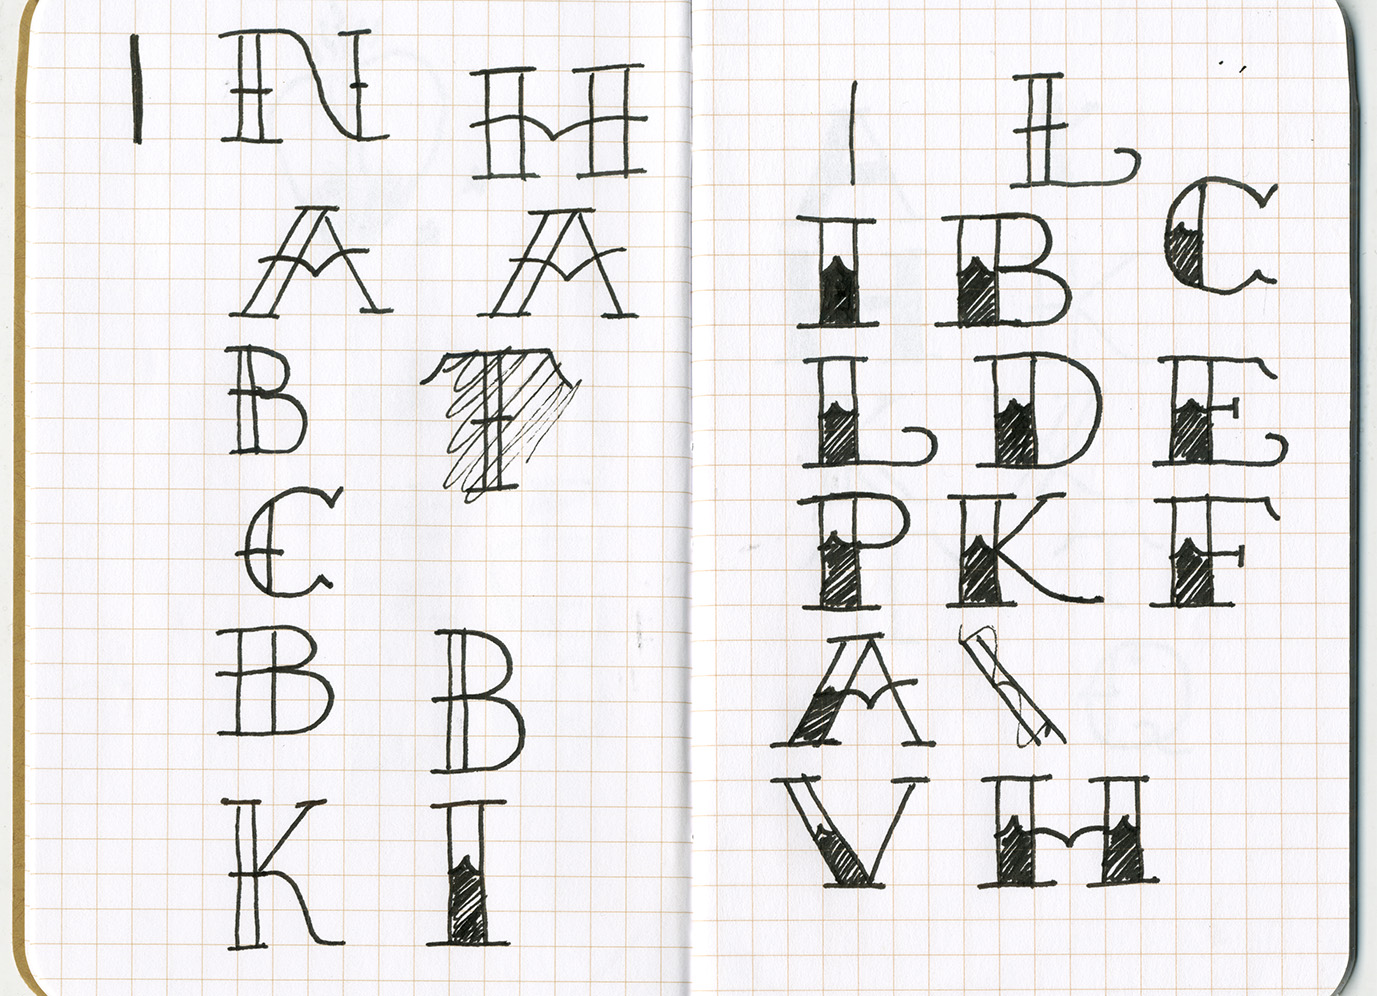 I N H
A A
B T
C
B B
K I
I L
I B C
L D E
P K F
A \
V H